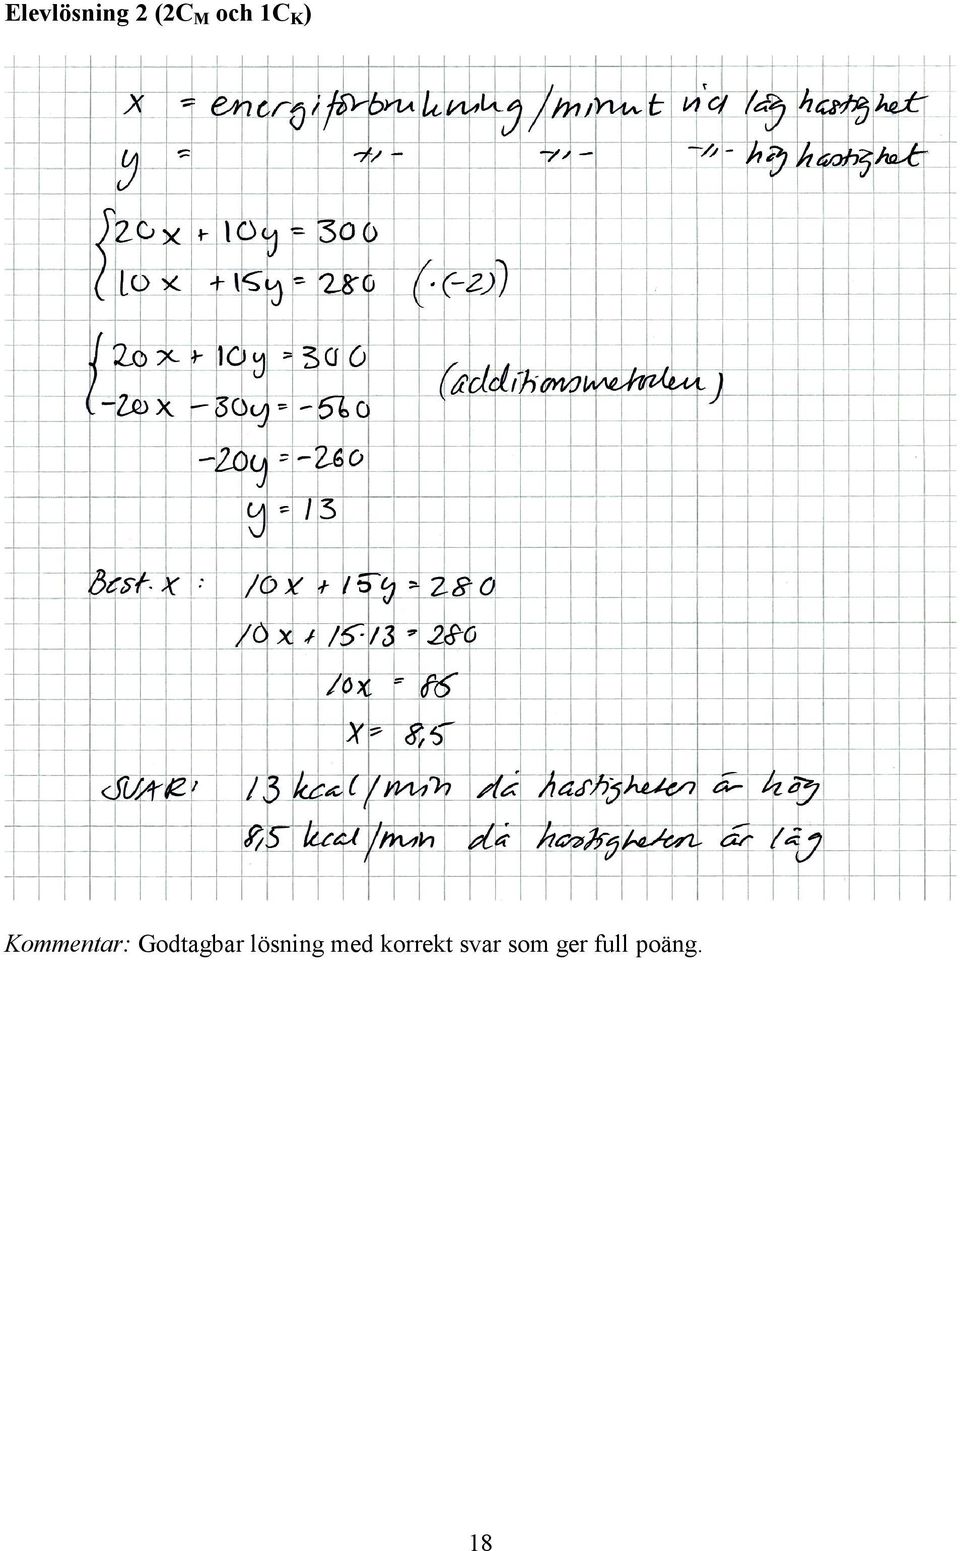 Elevlösning 2 (2CM och 1CK)
x = energiförbrukning/minut vid låg hastighet
y = -//- -//- -//- hög hastighet
{20x + 10y = 300
{10x + 15y = 280 (·(-2))
{20x + 10y = 300
{-20x - 30y = -560 (additionsmetoden)
-20y = -260
y = 13
Best. x : 10x + 15y = 280
10x + 15·13 = 280
10x = 85
x = 8,5
SVAR: 13 kcal/min då hastigheten är hög
8,5 kcal/min då hastigheten är låg
Kommentar: Godtagbar lösning med korrekt svar som ger full poäng.
18